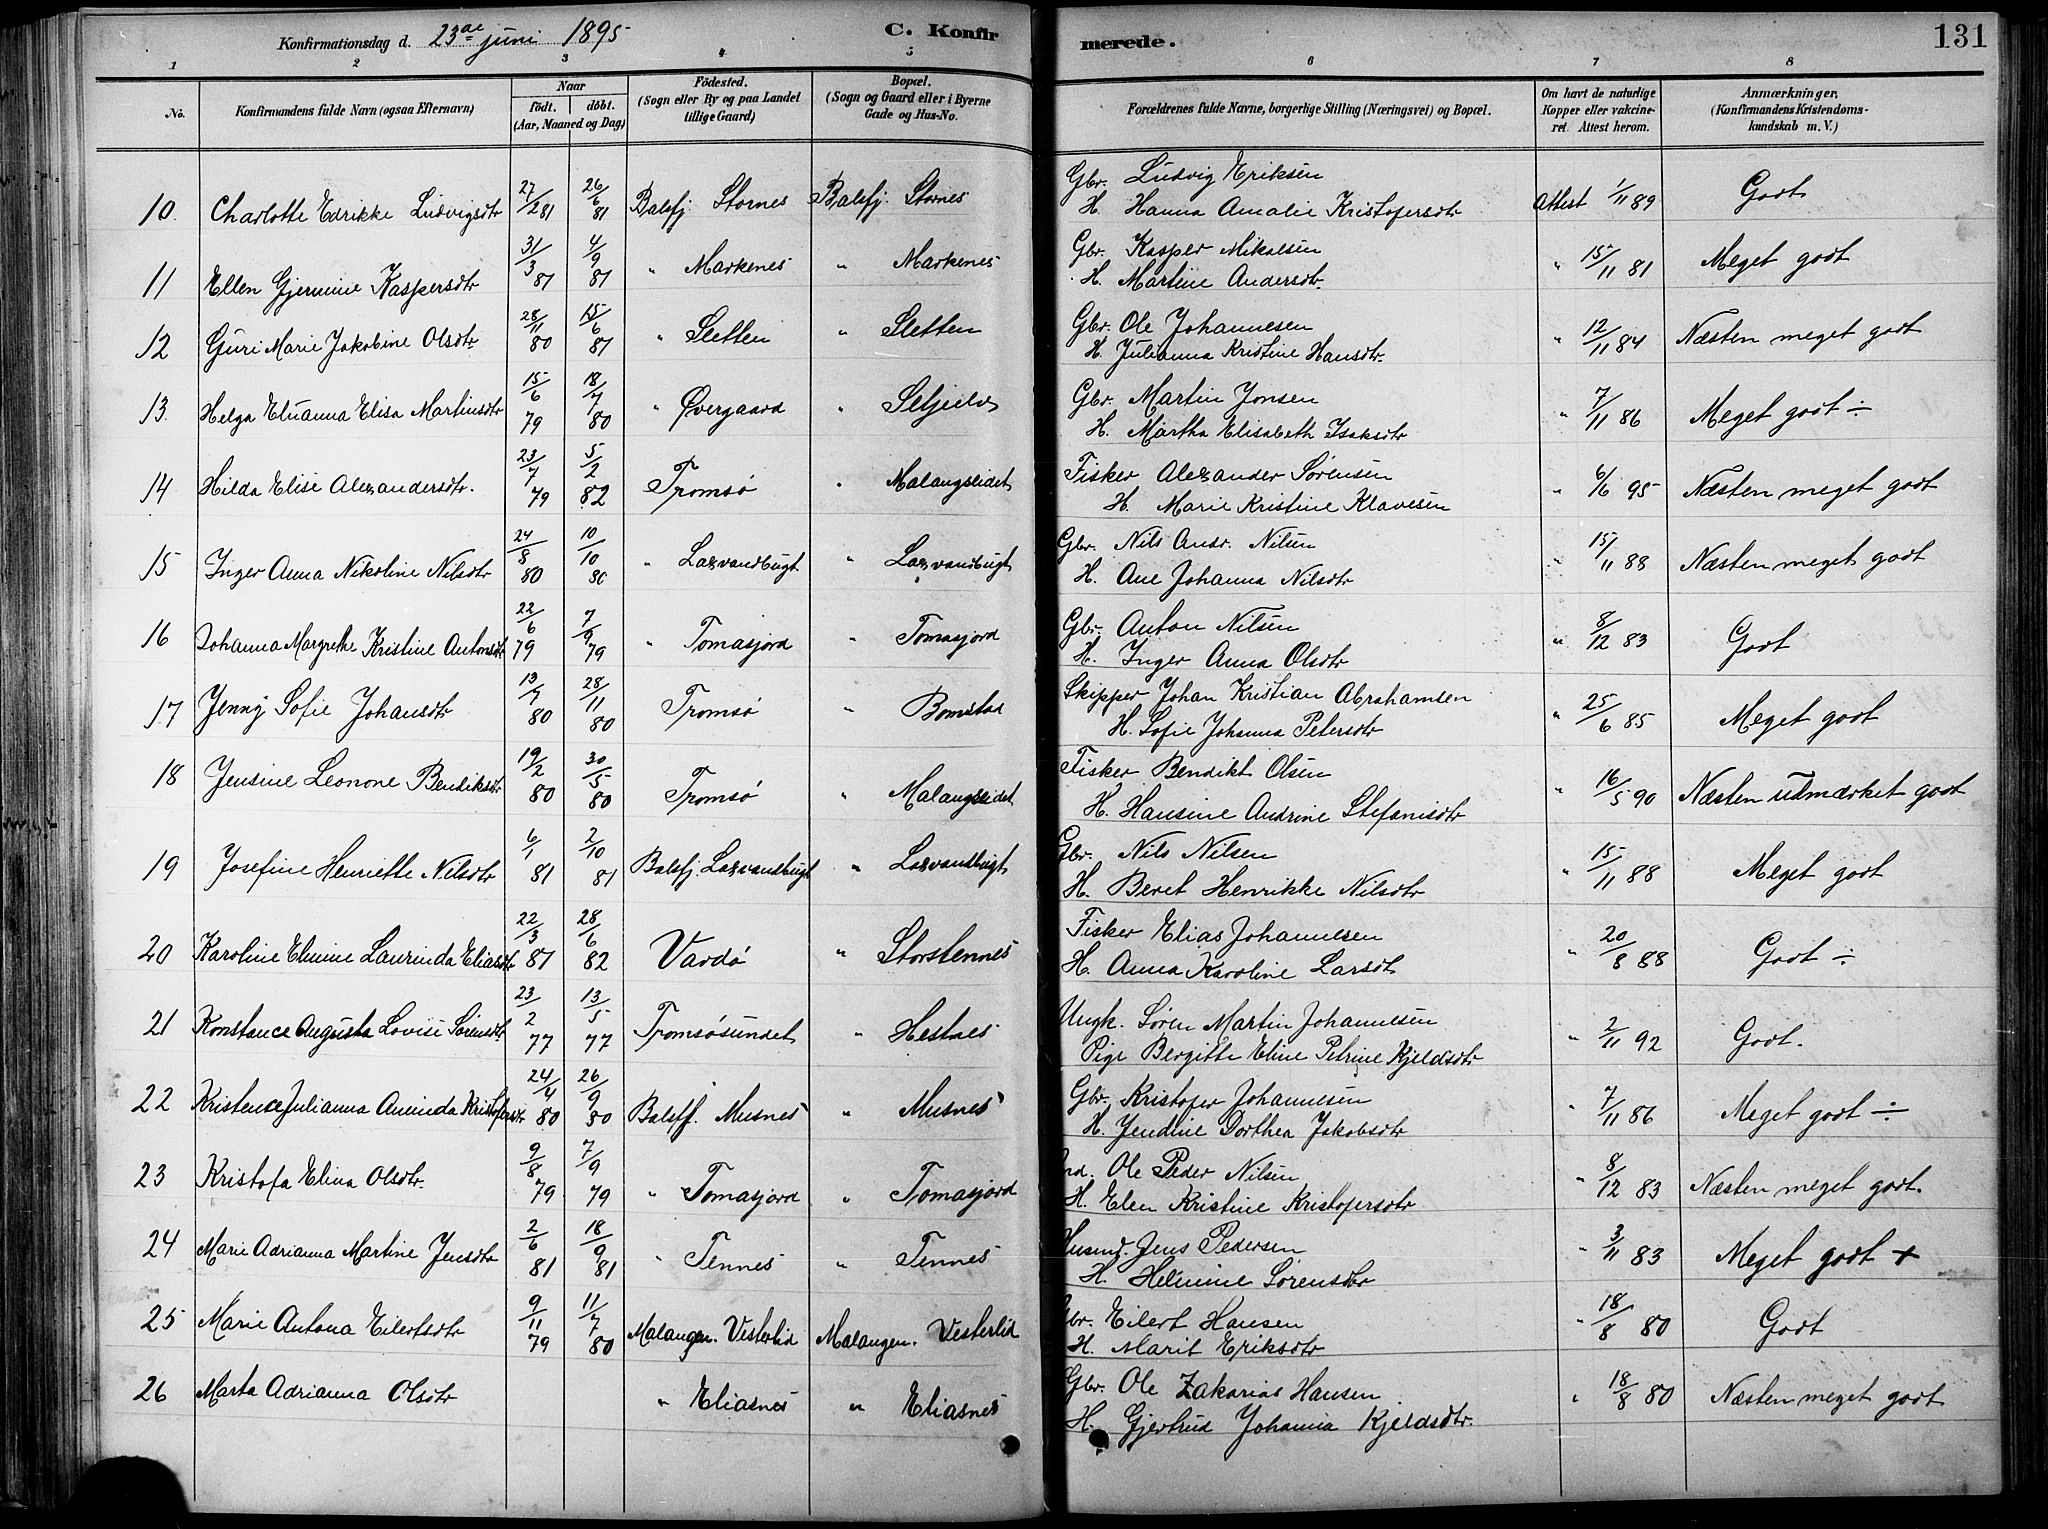 Konfirmationsdag d. 23de juni 1895
C. Konfirmerede.
131
1 2 3 4 5 6 7 8
No.
Konfirmandens fulde Navn (ogsaa Efternavn)
Naar
födt. döbt.
(Aar, Maaned og Dag)
Födested.
(Sogn eller By og paa Landet
tillige Gaard)
Bopæl.
(Sogn og Gaard eller i Byerne
Gade og Hus-No.
Forældrenes fulde Navne, borgerlige Stilling (Næringsvei) og Bopæl.
Om havt de naturlige
Kopper eller vakcine-
ret. Attest herom.
Anmærkninger,
(Konfirmandens Kristendoms-
kundskab m. V.)
10. Charlotte Edrikke Ludvigsdtr 27/2 81 26/6 81 Balsfj. Stornes Balsfj. Stornes Gbr. Ludvig Eriksen
H. Hanna Amalie Kristofersdtr Attest 1/11 89 Godt
11 Ellen Gjermine Kaspersdtr 31/3 81 4/9 81 " Markenes " Markenes Gbr. Kasper Mikalsen
H. Martine Andersdtr. " 15/11 81 Meget godt
12 Guri Marie Jakobine Olsdtr. 28/11 80 15/6 81 " Sletten " Sletten Gbr. Ole Johannesen
H. Julianna Kristine Hansdtr. " 12/11 84 Næsten meget godt
13. Helga Eluanna Elisa Martinsdtr 15/6 79 18/7 80 " Øvergaard " Seljelv Gbr. Martin Jonsen
H. Martha Elisabeth Isaksdtr " 7/11 86 Meget godt ÷
14 Hilda Elise Alexandersdtr. 23/7 79 5/2 82 Tromsø " Malangseidet Fisker Alexander Sørensen
H. Marie Kristine Klavesen " 6/6 95 Næsten meget godt
15 Inger Anna Nikoline Nilsdtr 24/8 80 10/10 80 " Laxvandbugt " Laxvandbugt Gbr. Nils Andr. Nilsen
H. Ane Johanna Nilsdtr " 15/11 88 Næsten meget godt
16 Johanna Margrethe Kristine Antonsdtr 22/6 79 7/9 79 " Tomasjord " Tomasjord Gbr. Anton Nilsen
H. Inger Anna Olsdtr " 8/12 83 Godt
17 Jenny Sofie Johansdtr 13/7 80 28/11 80 Tromsø " Bomstad Skipper Johan Kristian Abrahamsen
H. Sofie Johanna Petersdtr " 25/6 85 Meget godt
18 Jensine Leonone Bendiksdtr 19/2 80 30/5 80 Tromsø " Malangseidet Fisker Bendikt Olsen
H. Hansine Andrine Stefanisdtr " 16/5 90 Næsten udmærket godt
19 Josefine Henriette Nilsdtr 6/1 81 2/10 81 Balsfj. Laxvandbugt " Laxvandbugt Gbr. Nils Nilsen
H. Beret Henrikke Nilsdtr " 15/11 88 Meget godt
20 Karoline Elmine Laurinda Eliasdtr 22/3 81 28/6 82 Vardø " Storstennes Fisker Elias Johannesen
H. Anna Karoline Larsdt " 20/8 88 Godt ÷
21 Konstance Augusta Lovise Sørensdtr 23/2 77 13/5 77 Tromsøsundet " Hestnes Ungk. Søren Martin Johannesen
Pige Bergitte Eline Petrine Kjeldsdtr " 2/11 92 Godt.
22 Kristence Julianna Aminda Kristofersdtr 24/4 80 26/9 80 Balsfj. Musnes " Musnes Gbr. Kristofer Johannesen
H. Jendine Dorthea Jakobsdtr " 7/11 86 Meget godt ÷
23 Kristofa Elina Olsdtr. 9/8 79 7/9 79 " Tomasjord " Tomasjord Ind. Ole Peder Nilsen
H. Elen Kristine Kristofersdtr " 8/12 83 Næsten meget godt.
24 Marie Adrianna Martine Jensdtr 2/6 81 18/9 81 " Tennes " Tennes Husmd. Jens Pedersen
H. Helmine Sørensdtr " 3/11 83 Meget godt +
25 Marie Antona Eilertsdtr 9/11 79 11/7 80 Malangen. Vesterlid Malangen. Vesterlid Gbr. Eilert Hansen
H. Marit Eriksdtr " 18/8 80 Godt
26 Marta Adrianna Olsdtr " Eliasnes " Eliasnes Gbr. Ole Zakarias Hansen
H. Gjertrud Johanna Kjeldsdtr. " 18/8 80 Næsten meget godt